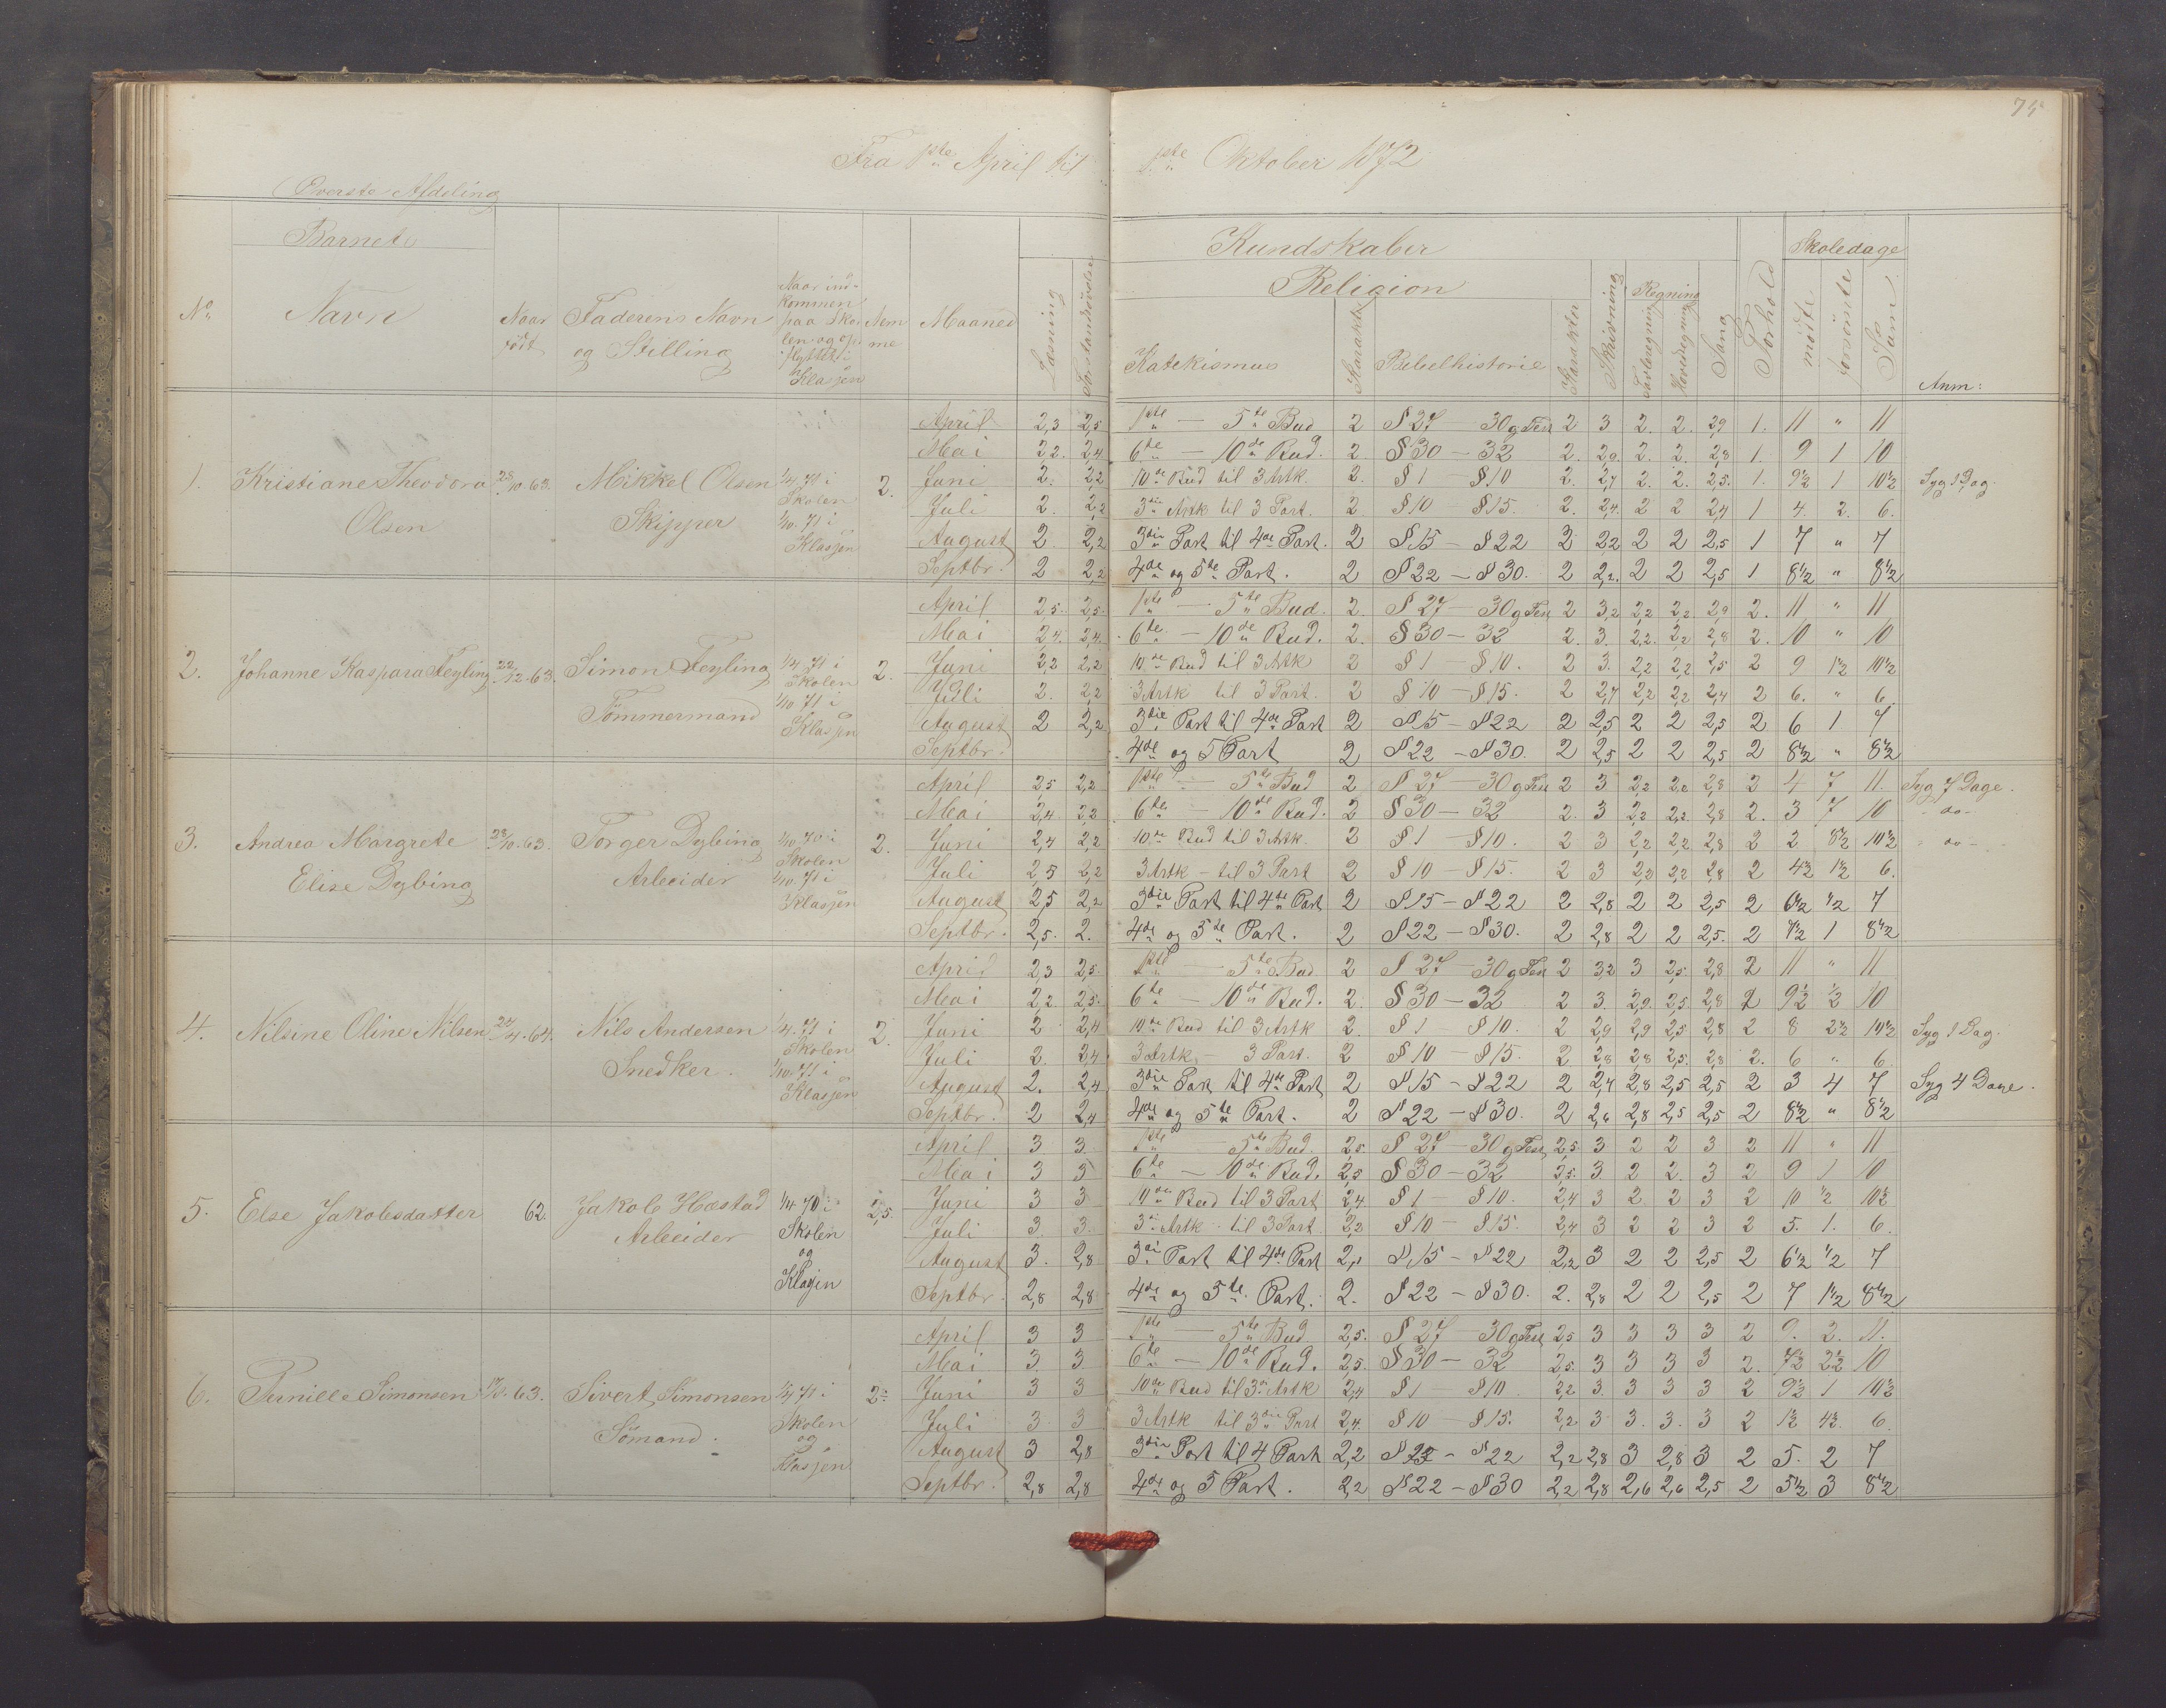 74
Fra 1ste April til 1ste Oktober 1872
Øverste Afdeling
Barnets
Kundskaber
Skoledage
Religion
Regning
No Navn Naar födt Faderens Navn og Stilling Naar indkommen paa Skolen og opflyttet i Klassen Maaned Læsning Katekismus Karakter Bibelhistorie Karakter Skrivning Tavleregning Hovedregning Sang Forhold mödte forsömte Sum Anm:
1. Kristiane Theodora Olsen 28/10 63. Mikkel Olsen Skipper 1/4 70 i Skolen 1/10. 71 i Klassen 2.
April 2,3 2,5 1ste — 5te Bud 2 § 27 — 30 2 3 2. 2. 2,9 1. 11 " 11
Mai 2,2. 2,4 6te — 10de Bud. 2. § 30 — 32 2. 2,9. 2. 2. 2,8 1. 9 1 10
Juni 2. 2,2 10de Bud til 3 Artk. 2. § 1 — § 10 2. 2,7 2. 2. 2,5. 1. 9½ 1 10½ Syg 1 Dag.
Juli 2. 2,2 3die Artk til 3 Part. 2 § 10 — § 15. 2. 2,4. 2 2 2,4 1 4. 2. 6.
August 2 2,2 3die Part til 4de Part. 2 § 15 — § 22 2 2,2 2 2 2,5 1 7 " 7
Septbr. 2 2,2 4de og 5te Part. 2 § 22 — § 30. 2 2,2. 2 2 2,5 1 8½ " 8½
2. Johanne Kaspara Feyling 22/12-63. Simon Feyling Tömmermand 1/4 71 i Skolen 1/10 71 i Klassen 2.
April 2,5. 2,5. 1ste — 5te Bud. 2. § 27 — 30 2 3,2 2,2 2,2. 2,9 2. 11 " 11
Mai 2,4. 2,4. 6te — 10de Bud. 2. § 30 — 32 2. 3. 2,2. 2,2 2,8 2. 10 " 10
Juni 2,2 2,2 10de Bud til 3 Artk 2 § 1 — § 10. 2 3. 2,2 2,2. 2,5 2 9 1½ 10½
Juli 2. 2,2 3 Artk til 3 Part. 2 § 10 — § 15. 2 2,7 2,2 2,2 2,4 2 6. " 6
August 2 2,2 3die Part til 4de Part 2 § 15 — § 22 2 2,5 2 2 2,5 2 6 1 7
Septbr. 4de og 5 Part 2 § 22 — § 30. 2 2,5 2 2 2,5 2 8½ " 8½
3. Andrea Margrete Elise Dybing 28/10.63. Torger Dybing Arbeider 1/10 70 i Skolen 1/10. 71 i Klassen 2.
April 2,5 2,2 1ste — 5te Bud 2 § 27 — 30 2 3 2,2 2,8 2 4 7 11. Syg 7 Dage.
Mai 2,4 2,2 6te — 10de Bud. 2 § 30 — 32 2. 3 2,2 2,2. 2,8 2. 3 7 10 - do -
Juni 2,4 2,2 10de Bud til 3 Artk. 2 § 1 — § 10. 2 3 2,2 2,2 2,8 2 2 8½ 10½ - do -
Juli 2,5 2,2 3 Artk - til 3 Part 2 § 10 — § 15. 2 3 2,2 2,2 2,8 2 4½ 1½ 6.
August 2,5 2,2 3die Part til 4de Part 2 § 15 — § 22 2 2,8 2 2 2,5 2 6½ ½ 7
Septbr. 2,5. 2. 4de og 5te Part. 2 § 22 — § 30. 2 2,8 2 2 2,5. 2 7½ 1 8½
4. Nilsine Oline Nilsen 24/4.64. Nils Andersen Snedker. 1/4. 71 i Skolen 1/10. 71 i Klassen 2.
April 2,3 2,5. 1ste — 5te Bud 2 § 27 — 30 2 3,2 3 2,5. 2,8 2 11 " 11
Mai 2,2. 2,5. 6te — 10de Bud. 2. § 30 — 32 2 3. 2,9. 2,5 2,8 2 9½ ½ 10
Juni 2 2,4 10de Bud til 3 Artk 2. § 1 — § 10. 2 2,9 2,9 2,5 2,8 2 8 2½ 10½ Syg 1 Dag.
Juli 2. 2,4 3 Artk - 3 Part. 2 § 10 — § 15. 2 2,8 2,8 2,5. 2,8 2. 6 " 6
August 2. 2,4 3die Part til 4de Part 2 § 15 — § 22 2 2,7 2,8 2,5 2,5 2 3 4 7 Syg 4 Dage.
Septbr. 2 2,4 4de og 5te Part. 2 § 22 — § 30. 2 2,6 2,8 2,5 2,5 2 8½ " 8½
5. Else Jakobsdatter 62. Jakob Hæstad Arbeider 1/4 70 i Skolen og Klassen 2,5.
April 3 3. 1ste 5te Bud. 2,5. § 27 — 30 2,5 3 2 2 3 2 11 " 11
Mai 3 3 6te — 10de Bud. 2,5 § 30 — 32 2,5. 3. 2 2. 3 2 9 1 10
Juni 3 3 10de Bud til 3 Part 2,4 § 1 — § 10. 2,4 3 2 2 3 2 10 ½ 10½
Juli 3. 3. 3die Artk. til 3 Part. 2,2 § 10 — § 15. 2,4 3 2 2 3 2 5. 1. 6.
August 3. 2,8 3di Part til 4de Part § 15 — § 22 2,2 3 2 2 2,5 2 6½ ½ 7
Septbr. 2,8 2,8 4de og 5te Part. 2. § 22 — § 30. 2. 2,8 2 2 2,5 2 7 1½ 8½
6. Pernille Simonsen 63. Sivert Simonsen Sömand. 1/4 71 i Skolen og Klassen
April 3 3 1ste — 5te Bud 2,5. § 27 — 30 2,5 3 3 3 3 2 9. 2. 11.
Mai 3 3 6te — 10de Bud. 2,5. § 30 — 32 2,5 3 3 3 3 2. 7½ 2½ 10
Juni 3 3 10de Bud til 3die Artk 2,4 § 1 — § 10 2,2 3. 3 3 3 2 9½ 1 10½
Juli 3 3 3 Artk til 3die Part 2,4. § 10 — § 15. 2,2 3 3. 3. 3 2 1½ 4½. 6.
August 3 2,8 3die Part til 4 Part 2,2 - § 22 2,2 2,8 3 2,8 3 2 5. 2 7
Septbr. 2,8 2,8 4de og 5 Part. 2,2 § 22 — § 30 2,2 2,8 2,6 2,6 2,5 2 5½ 3 8½